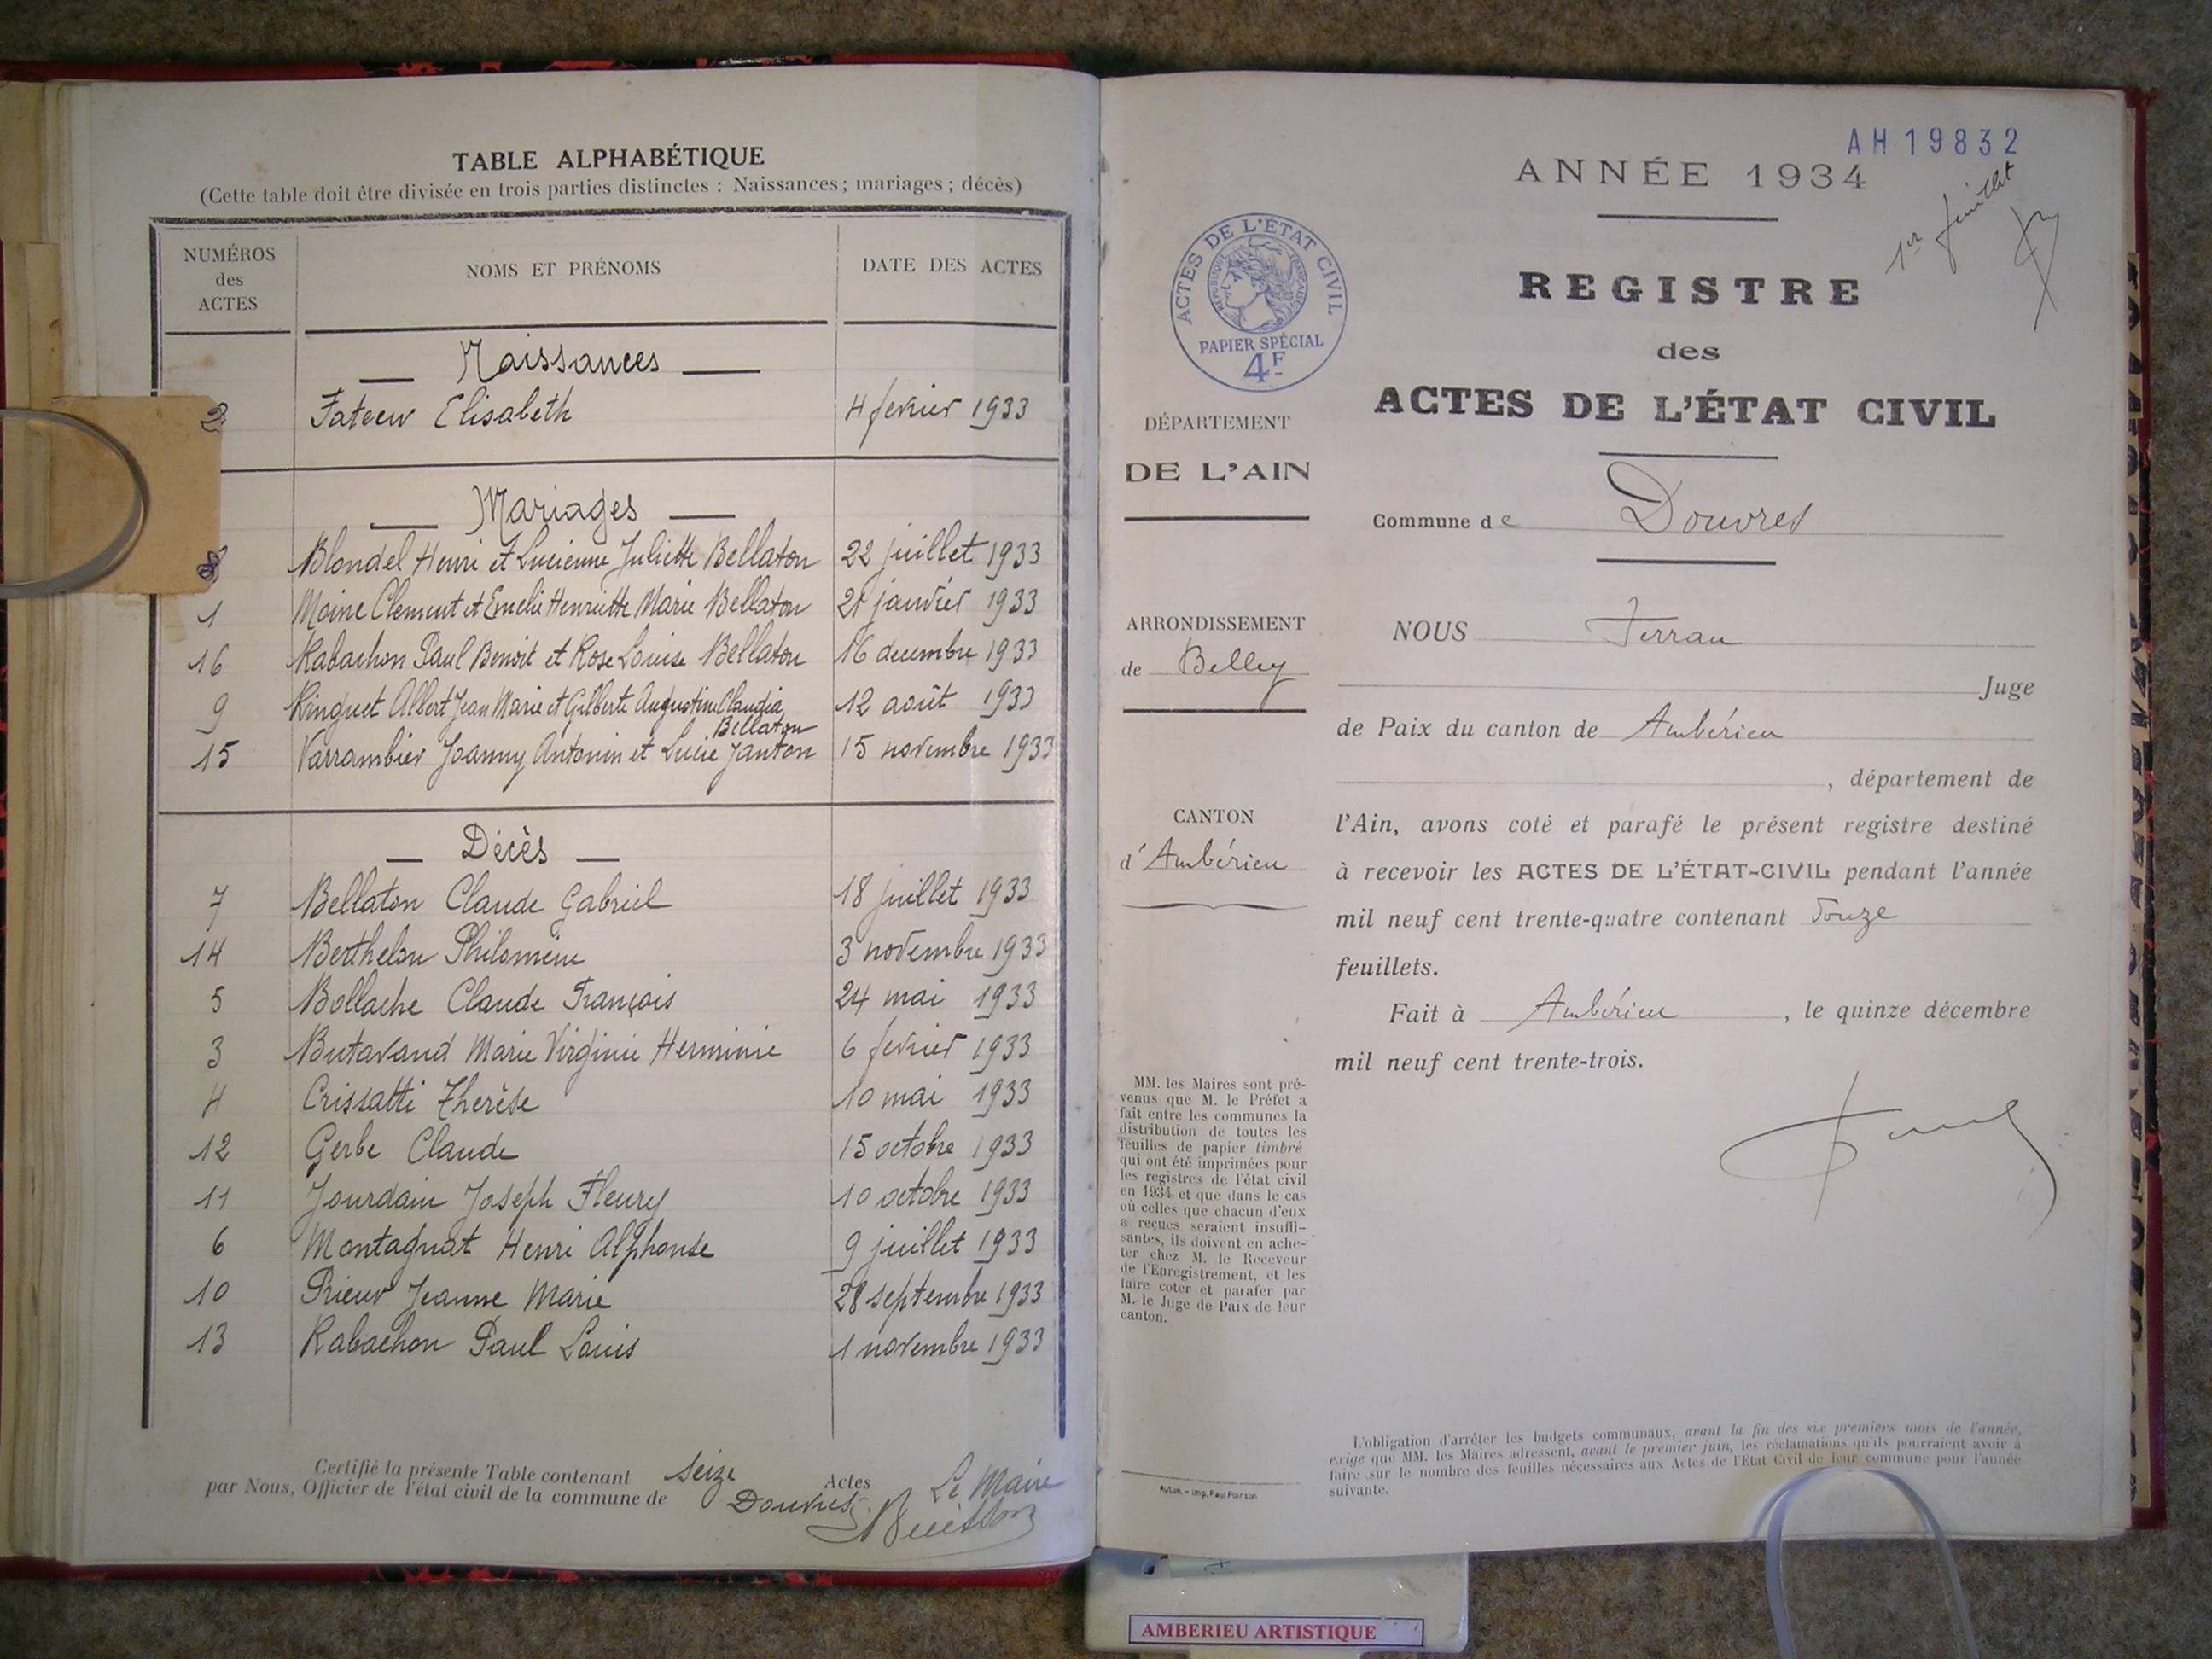 TABLE ALPHABÉTIQUE
(Cette table doit être divisée en trois parties distinctes : Naissances ; mariages ; décès)
NUMÉROS des ACTES NOMS ET PRÉNOMS DATE DES ACTES
Naissances
2 Fateur Elisabeth 4 fevrier 1933
Mariages
8 Blondel Henri et Lucienne Juliette Bellaton 22 juillet 1933
1 Moine Clement et Emelie Henriette Marie Bellaton 21 janvier 1933
16 Rabachon Paul Benoit et Rose Louise Bellaton 16 decembre 1933
9 Ringuet Albert Jean Marie et Gilberte Augustine Claudia 12 août 1933
Bellaton
15 Varrambier Joanny Antonin et Lucie Janton 15 novembre 1933
Décès
7 Bellaton Claude Gabriel 18 juillet 1933
14 Berthelon Philomène 3 novembre 1933
5 Bollache Claude François 24 mai 1933
3 Butavand Marie Virginie Herminie 6 fevrier 1933
4 Crissatti Thérèse 10 mai 1933
12 Gerbe Claude 15 octobre 1933
11 Jourdain Joseph Fleury 10 octobre 1933
6 Montagnat Henri Alphonse 9 juillet 1933
10 Prieur Jeanne Marie 28 septembre 1933
13 Rabachon Paul Louis 1 novembre 1933
Certifié la présente Table contenant seize Actes
par Nous, Officier de l'état civil de la commune de Douvres
Le Maire
AH 19832
ANNÉE 1934
1er feuillet
REGISTRE
des
ACTES DE L'ÉTAT CIVIL
Commune de Douvres
NOUS Ferran
Juge
de Paix du canton de Ambérieu
, département de
l'Ain, avons coté et parafé le présent registre destiné
à recevoir les ACTES DE L'ÉTAT-CIVIL pendant l'année
mil neuf cent trente-quatre contenant Douze
feuillets.
Fait à Ambérieu , le quinze décembre
mil neuf cent trente-trois.
ACTES DE L'ÉTAT CIVIL
RÉPUBLIQUE FRANÇAISE
PAPIER SPÉCIAL
4F
DÉPARTEMENT
DE L'AIN
ARRONDISSEMENT
de Belley
CANTON
d'Ambérieu
MM. les Maires sont pré-
venus que M. le Préfet a
fait entre les communes la
distribution de toutes les
feuilles de papier timbré
qui ont été imprimées pour
les registres de l'état civil
en 1934 et que dans le cas
où celles que chacun d'eux
a reçues seraient insuffi-
santes, ils doivent en ache-
ter chez M. le Receveur
de l'Enregistrement, et les
faire coter et parafer par
M. le Juge de Paix de leur
canton.
Autun. - Imp. Paul Poirson
L'obligation d'arrêter les budgets communaux, avant la fin des six premiers mois de l'année,
exige que MM. les Maires adressent, avant le premier juin, les réclamations qu'ils pourraient avoir à
faire sur le nombre des feuilles nécessaires aux Actes de l'Etat Civil de leur commune pour l'année
suivante.
AMBERIEU ARTISTIQUE